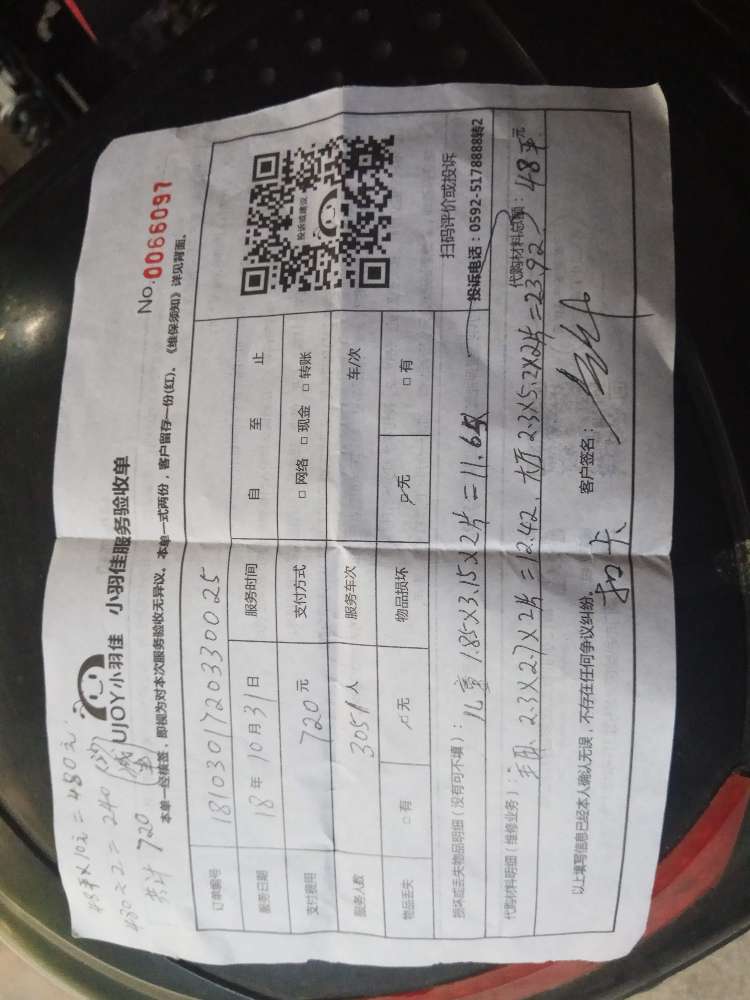 48平×10元=480元
480÷2=240
共计 720
UJOY小羽佳 小羽佳服务验收单
No.0066097
本单一经核签，即视为对本次服务验收无异议。本单一式两份，客户留存一份(红)。《维保须知》详见背面。
订单编号 181030172033 0025
服务日期 18年10月31日 服务时间 自 至 止
支付费用 720元 支付方式 □网络 □现金 □转账
服务人数 3051人 服务车次 车/次
物品丢失 □有 ☑无 物品损坏 ☑无 □有
投诉或建议
扫码评价或投诉
投诉电话：0592-5178888转2
损坏或丢失物品明细（没有可不填）： 儿童 1.85×3.15×2片=11.65
代购材料明细（维修业务）： 主卧 2.3×2.7×2片=12.42. 大厅 2.3×5.2×2片=23.92
代购材料总额： 48平 元
以上填写信息已经本人确认无误，不存在任何争议纠纷。 客户签名：
扣卡